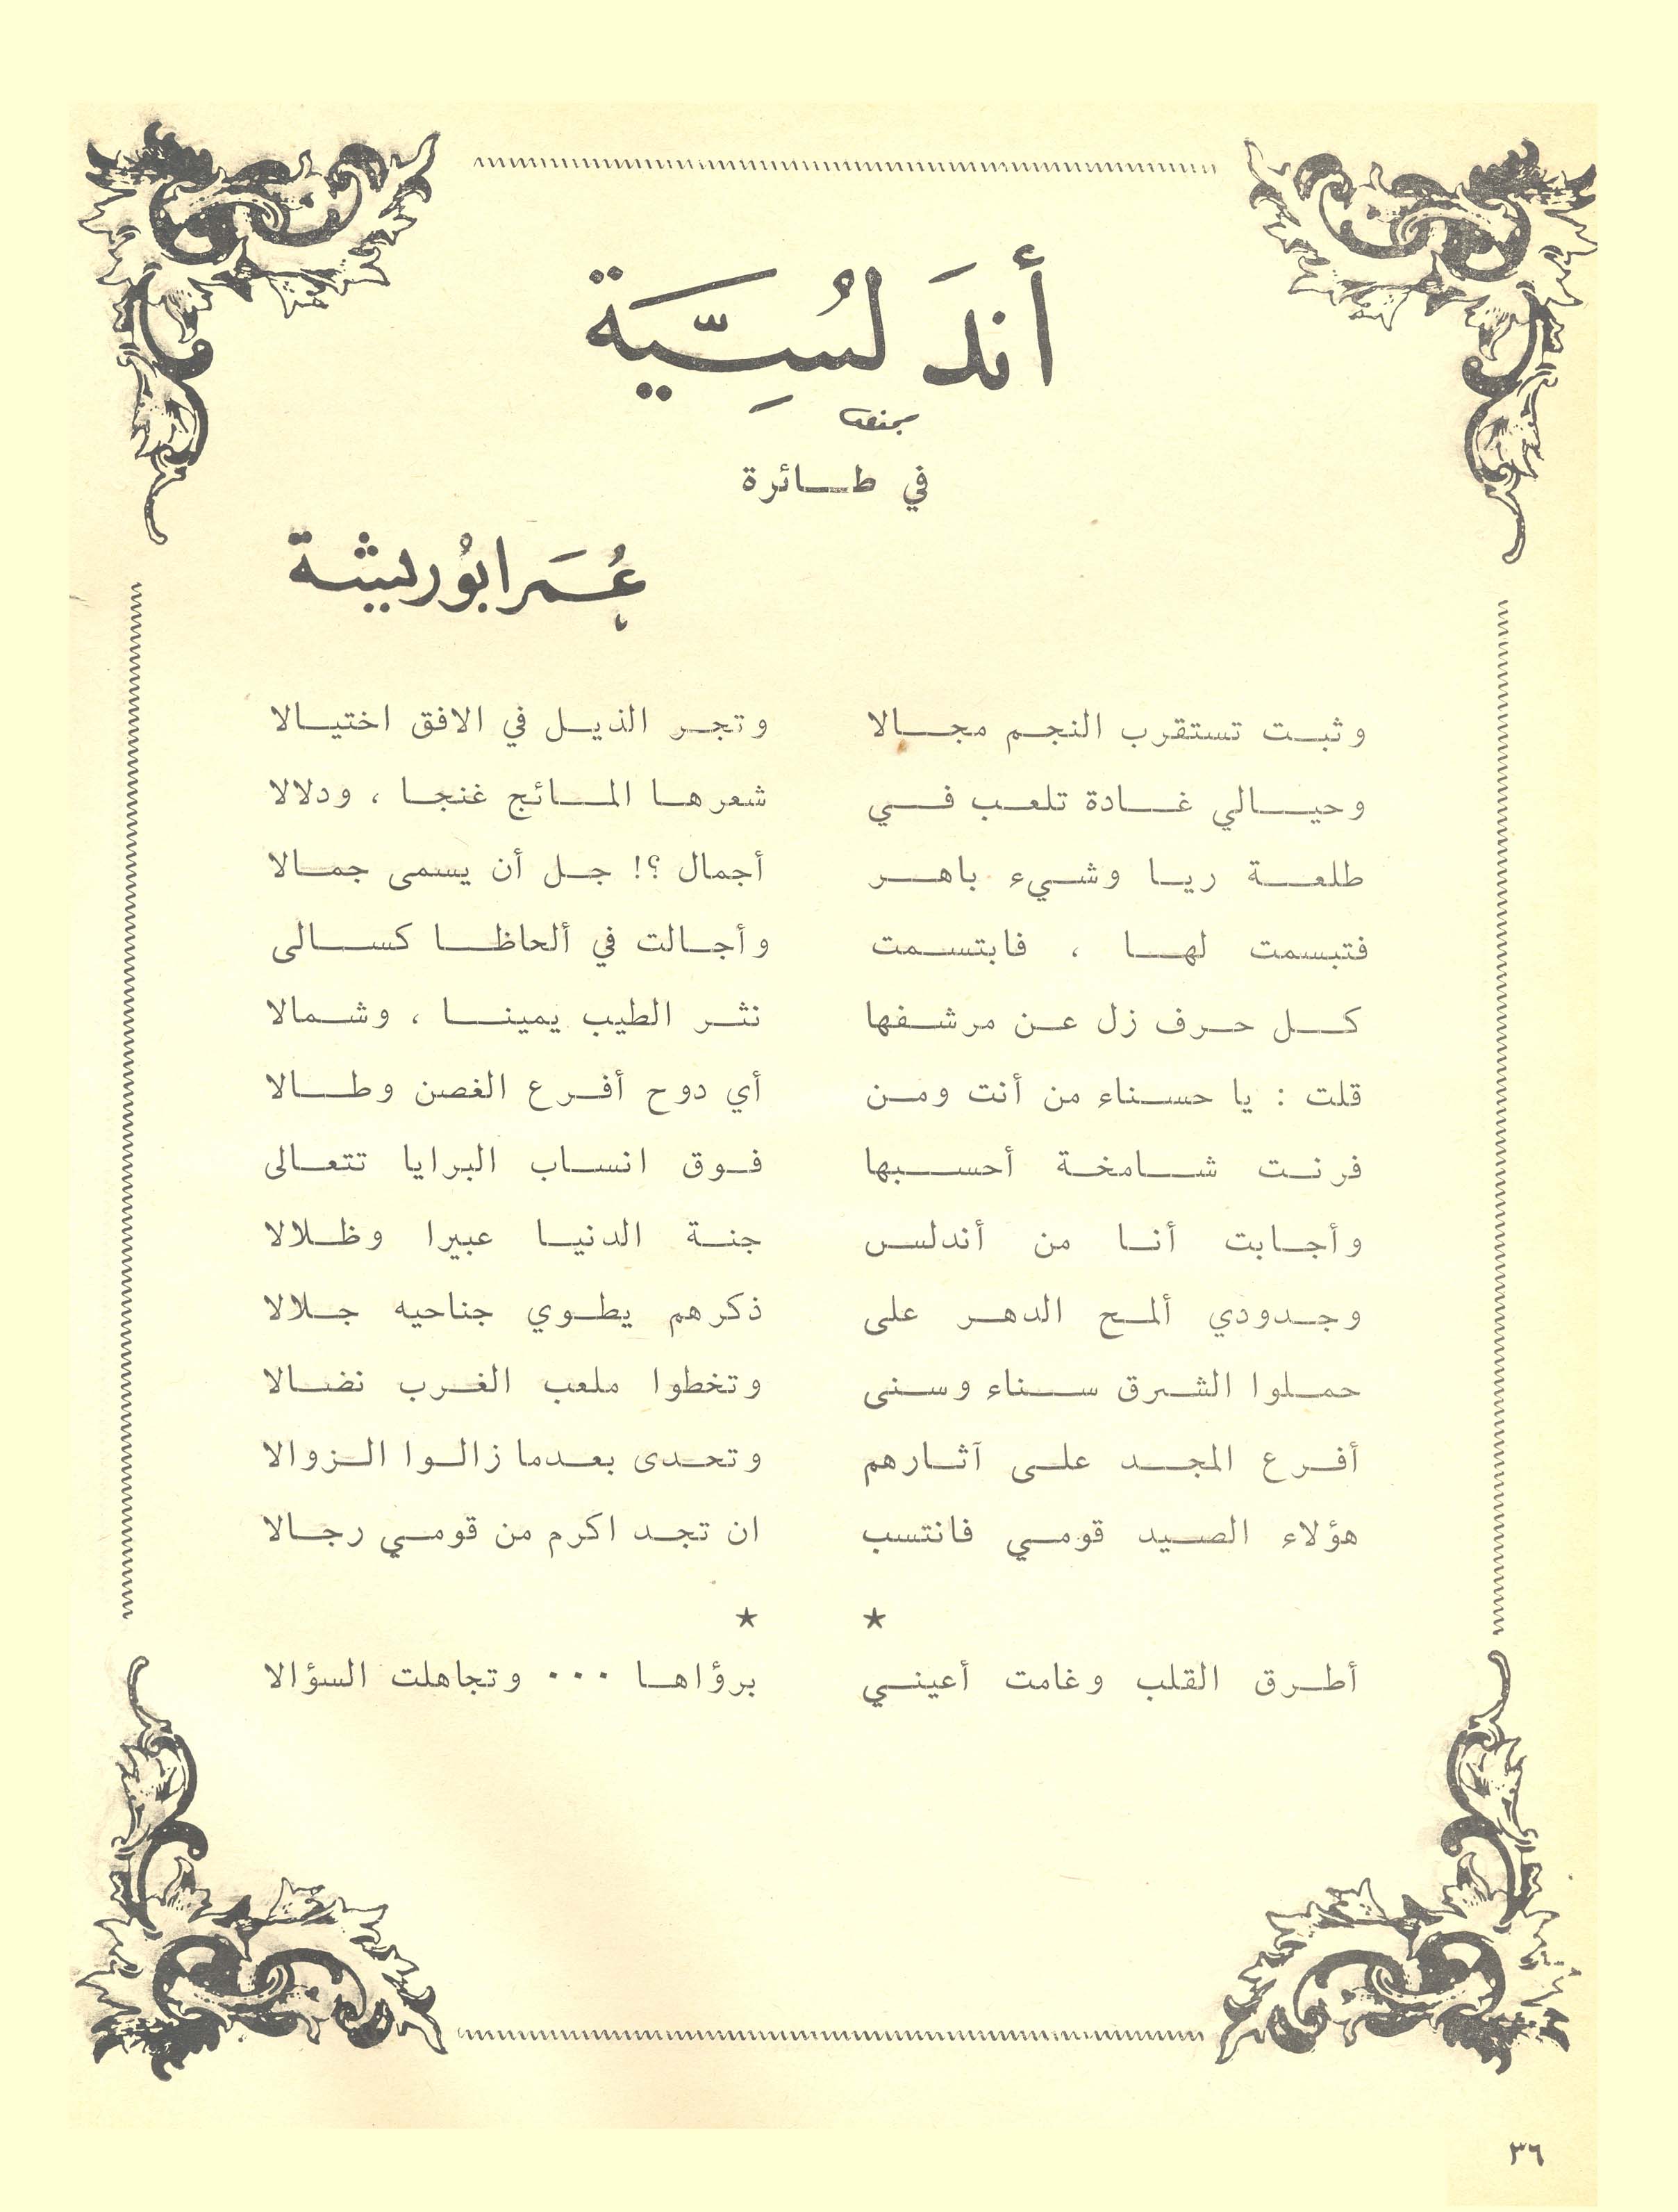 أندَلُسِيَّة
في طائرة
عُمَر ابوُريشة
وثبت تستقرب النجم مجالا وتجر الذيل في الافق اختيالا
وحيالي غادة تلعب في شعرها المائج غنجا ، ودلالا
طلعة ريا وشيء باهر أجمال ؟! جل أن يسمى جمالا
فتبسمت لها ، فابتسمت وأجالت في ألحاظا كسالى
كل حرف زل عن مرشفها نثر الطيب يمينا ، وشمالا
قلت : يا حسناء من أنت ومن أي دوح أفرع الغصن وطالا
فرنت شامخة أحسبها فوق انساب البرايا تتعالى
وأجابت أنا من أندلس جنة الدنيا عبيرا وظلالا
وجدودي ألمح الدهر على ذكرهم يطوي جناحيه جلالا
حملوا الشرق سناء وسنى وتخطوا ملعب الغرب نضالا
أفرع المجد على آثارهم وتحدى بعدما زالوا الزوالا
هؤلاء الصيد قومي فانتسب ان تجد اكرم من قومي رجالا
★ ★
أطرق القلب وغامت أعيني برؤاها ... وتجاهلت السؤالا
٣٦